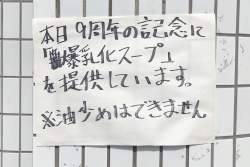 本日9周年の記念に
「爆乳化スープ」
を提供しています。
※油少めはできません